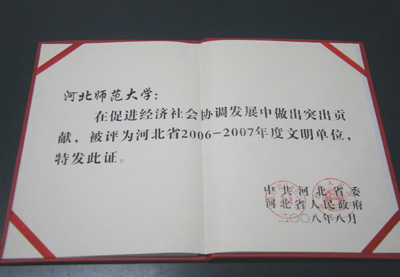 河北师范大学：
在促进经济社会协调发展中做出突出贡
献，被评为河北省2006-2007年度文明单位，
特发此证。
中共河北省委
河北省人民政府
二〇〇八年八月